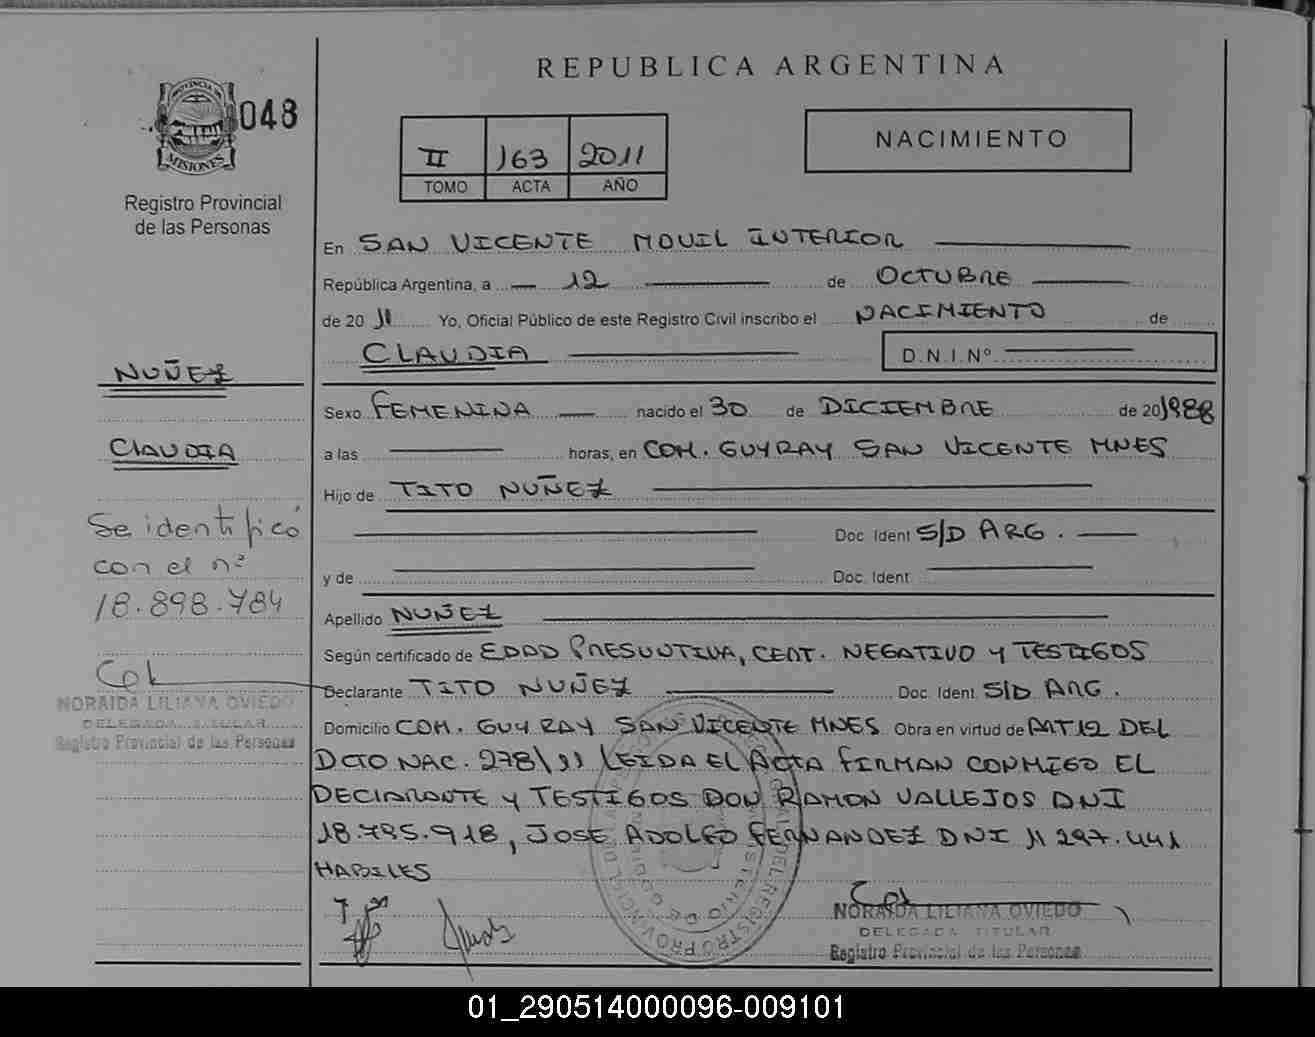 REPUBLICA ARGENTINA
048
PROVINCIA DE
MISIONES
Registro Provincial
de las Personas
II 163 2011
TOMO ACTA AÑO
NACIMIENTO
En SAN VICENTE MOVIL INTERIOR
República Argentina, a 12 de OCTUBRE
de 20 11 Yo, Oficial Público de este Registro Civil inscribo el NACIMIENTO de
CLAUDIA D.N.I.Nº
NUÑEZ
CLAUDIA
Se identificó
con el nº
18.898.784
NORAIDA LILIANA OVIEDO
DELEGADA TITULAR
Registro Provincial de las Personas
Sexo FEMENINA nacido el 30 de DICIEMBRE de 20 1988
a las horas, en COM. GUYRAY SAN VICENTE MNES
Hijo de TITO NUÑEZ
Doc. Ident S/D ARG.
y de Doc. Ident.
Apellido NUÑEZ
Según certificado de EDAD PRESUNTIVA, CERT. NEGATIVO Y TESTIGOS
Declarante TITO NUÑEZ Doc. Ident. S/D ARG.
Domicilio COM. GUYRAY SAN VICENTE MNES Obra en virtud de ART 12 DEL
DCTO NAC. 278/11 LEIDA EL ACTA FIRMAN CONMIGO EL
DECLARANTE Y TESTIGOS DON RAMON VALLEJOS DNI
18.785.918, JOSE ADOLFO FERNANDEZ DNI 11 297.441
HABILES
NORAIDA LILIANA OVIEDO
DELEGADA TITULAR
Registro Provincial de las Personas
01_290514000096-009101